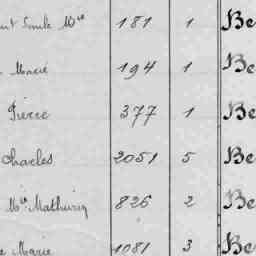 Émile Mce 181 1 Be
Marie 194 1 Be
Pierre 377 1 Be
Charles 2051 5 Be
Mathurin 826 2 Be
Marie 1081 3 Be